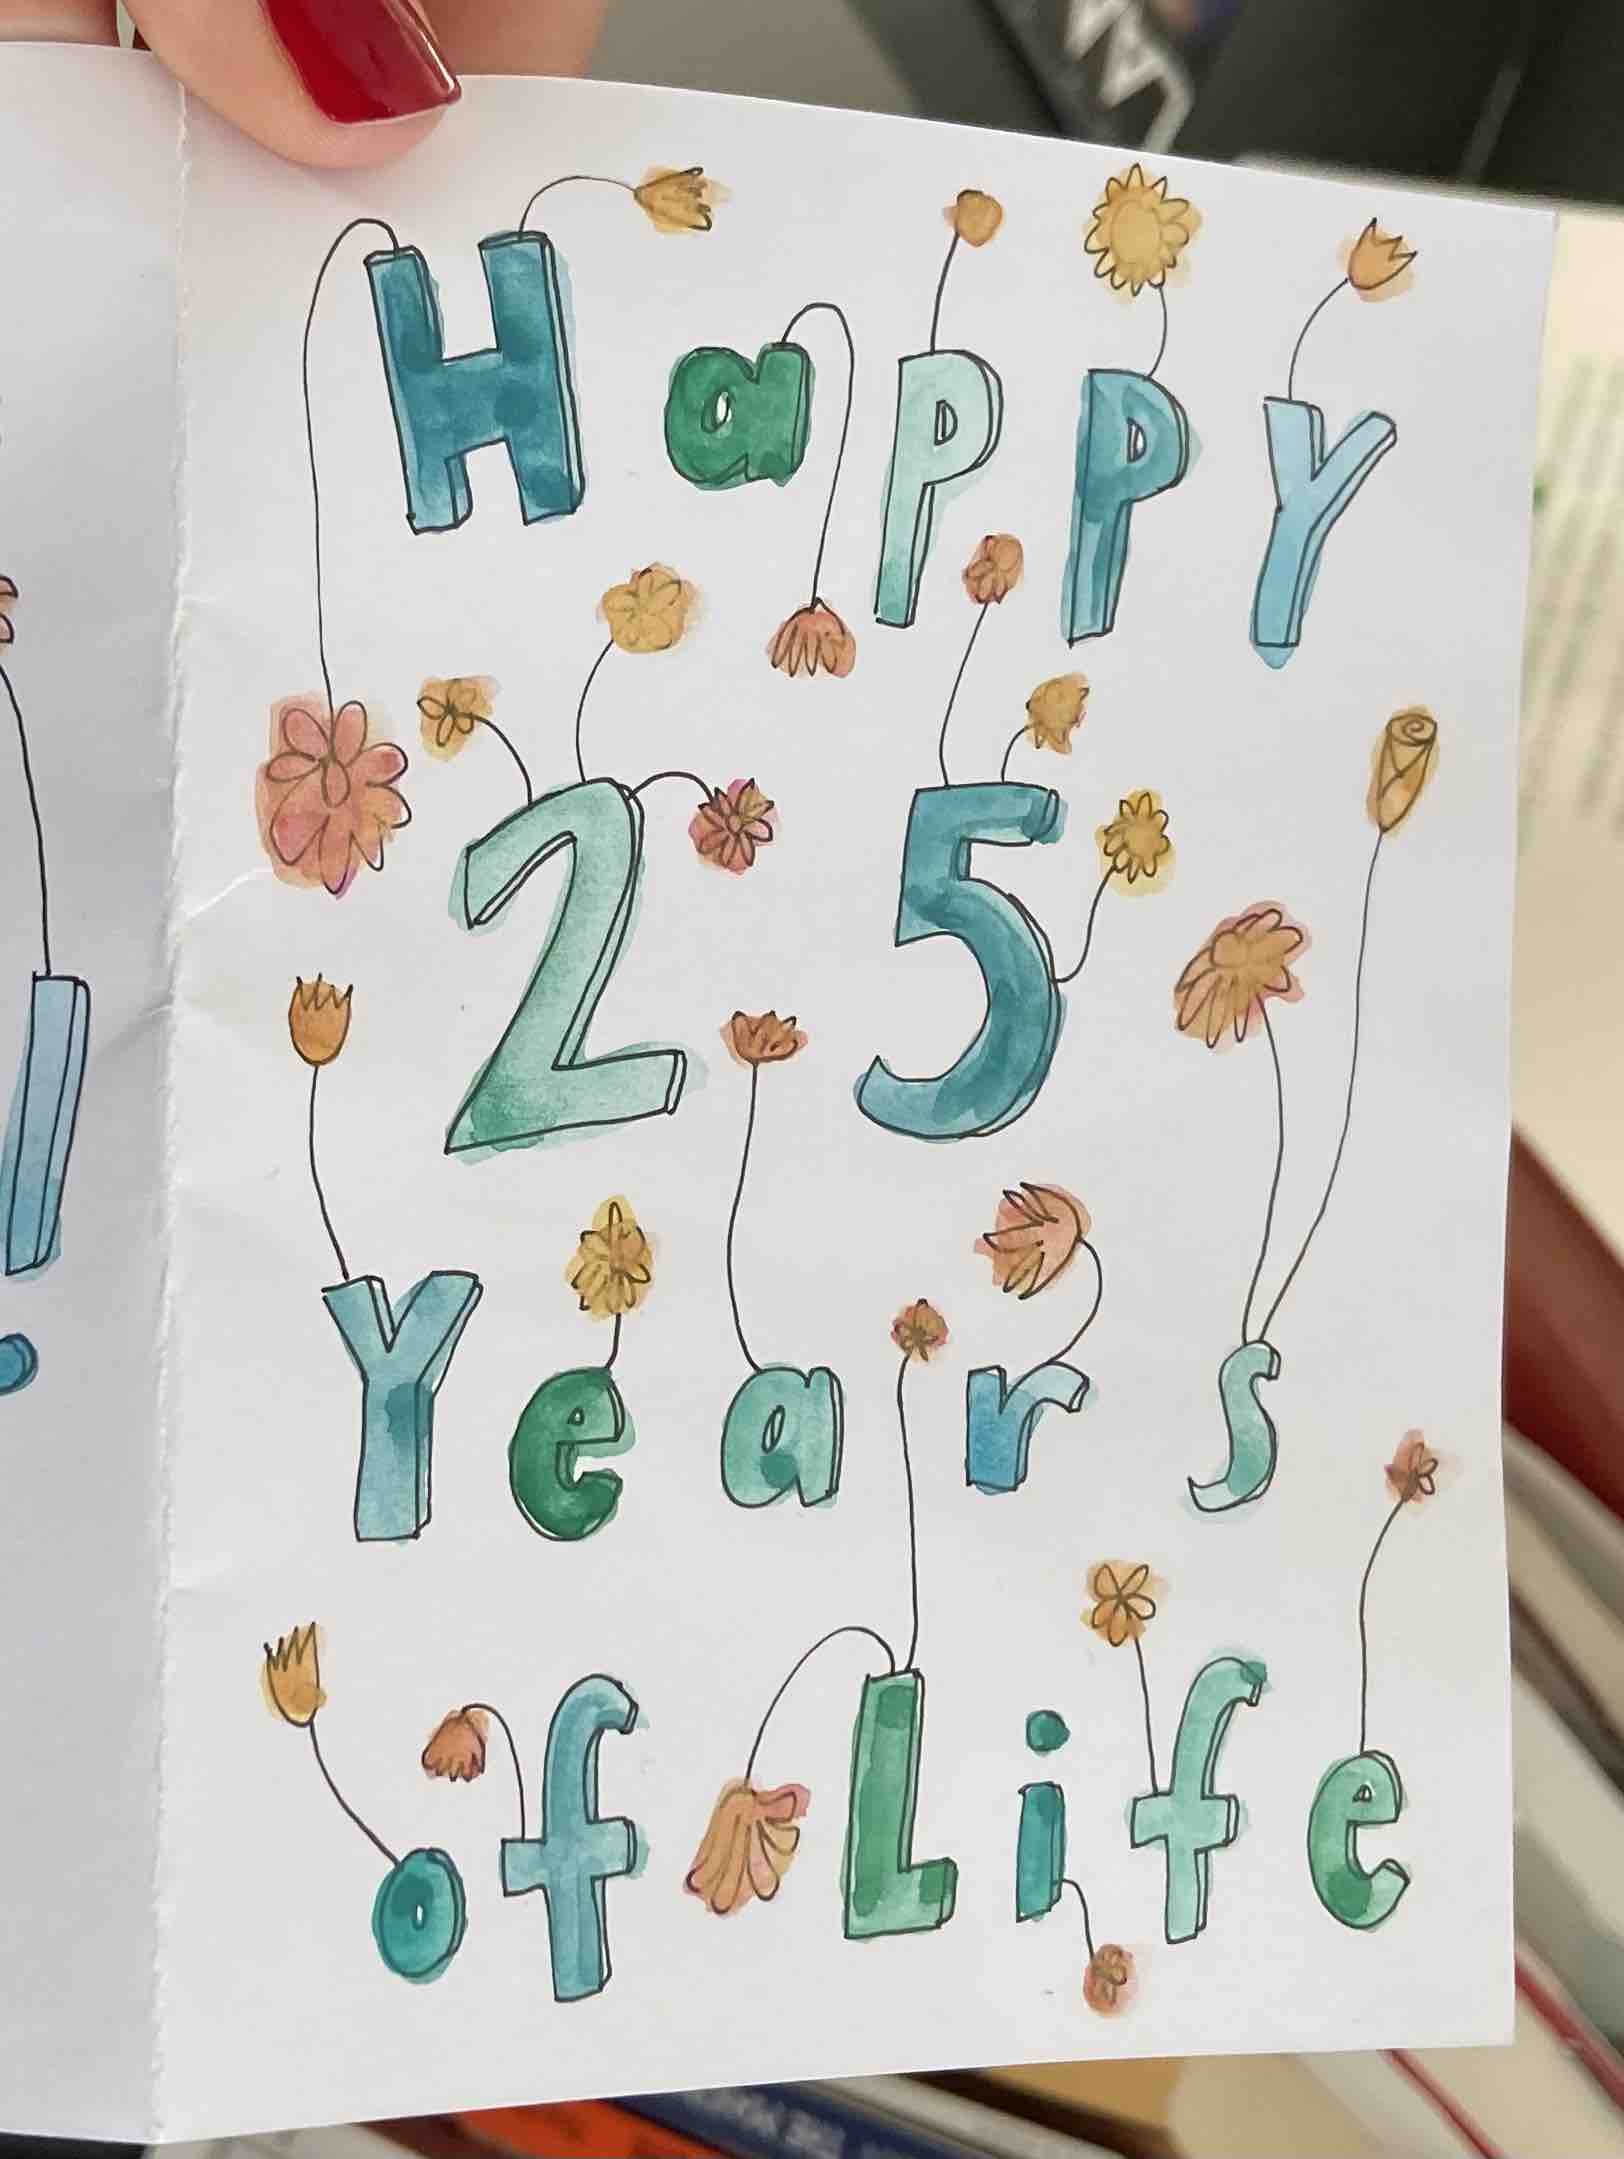 Happy
25
Years
of Life